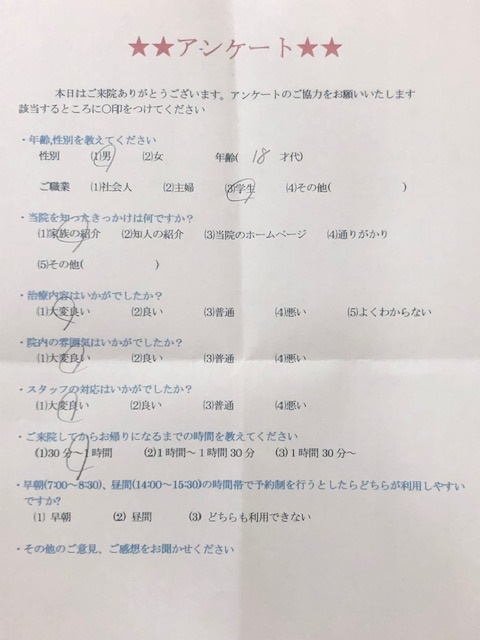 ★★アンケート★★
本日はご来院ありがとうございます。アンケートのご協力をお願いいたします
該当するところに○印をつけてください
・年齢,性別を教えてください
性別 (1)男 (2)女 年齢( 18 才代)
ご職業 (1)社会人 (2)主婦 (3)学生 (4)その他( )
・当院を知ったきっかけは何ですか?
(1)家族の紹介 (2)知人の紹介 (3)当院のホームページ (4)通りがかり
(5)その他( )
・治療内容はいかがでしたか?
(1)大変良い (2)良い (3)普通 (4)悪い (5)よくわからない
・院内の雰囲気はいかがでしたか?
(1)大変良い (2)良い (3)普通 (4)悪い
・スタッフの対応はいかがでしたか?
(1)大変良い (2)良い (3)普通 (4)悪い
・ご来院してからお帰りになるまでの時間を教えてください
(1)30分〜1時間 (2)1時間〜1時間30分 (3)1時間30分〜
・早朝(7:00〜8:30)、昼間(14:00〜15:30)の時間帯で予約制を行うとしたらどちらが利用しやすい
ですか?
(1) 早朝 (2) 昼間 (3) どちらも利用できない
・その他のご意見、ご感想をお聞かせください